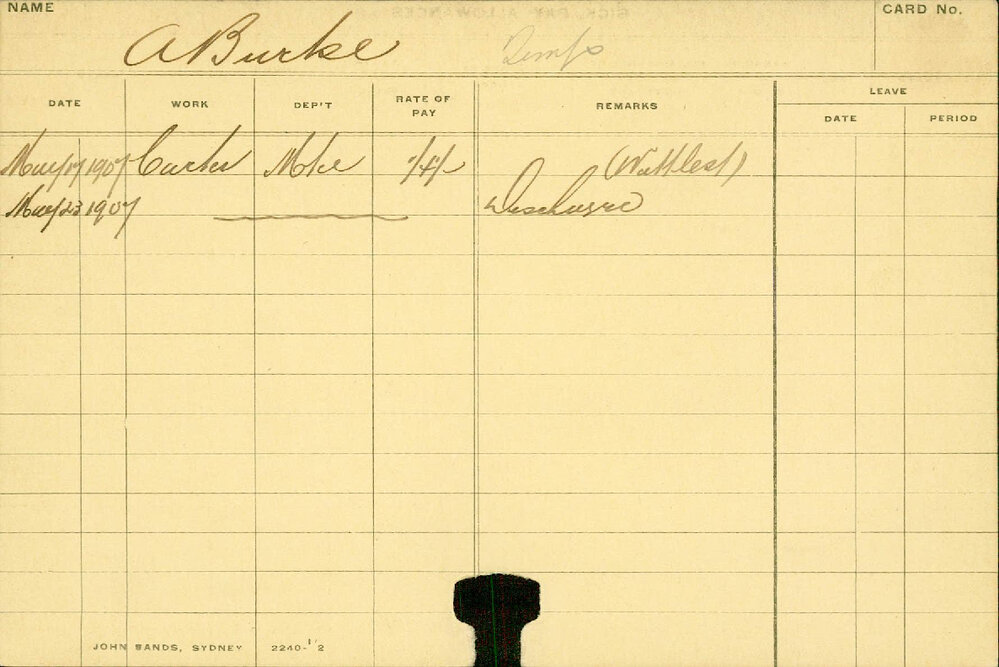 NAME
CARD No.
A Burke
Temp
DATE WORK DEP'T RATE OF PAY REMARKS LEAVE
DATE PERIOD
May 17 1907 Carter (Wattle St)
May 23 1907 Discharge
JOHN SANDS, SYDNEY 2240-1/2